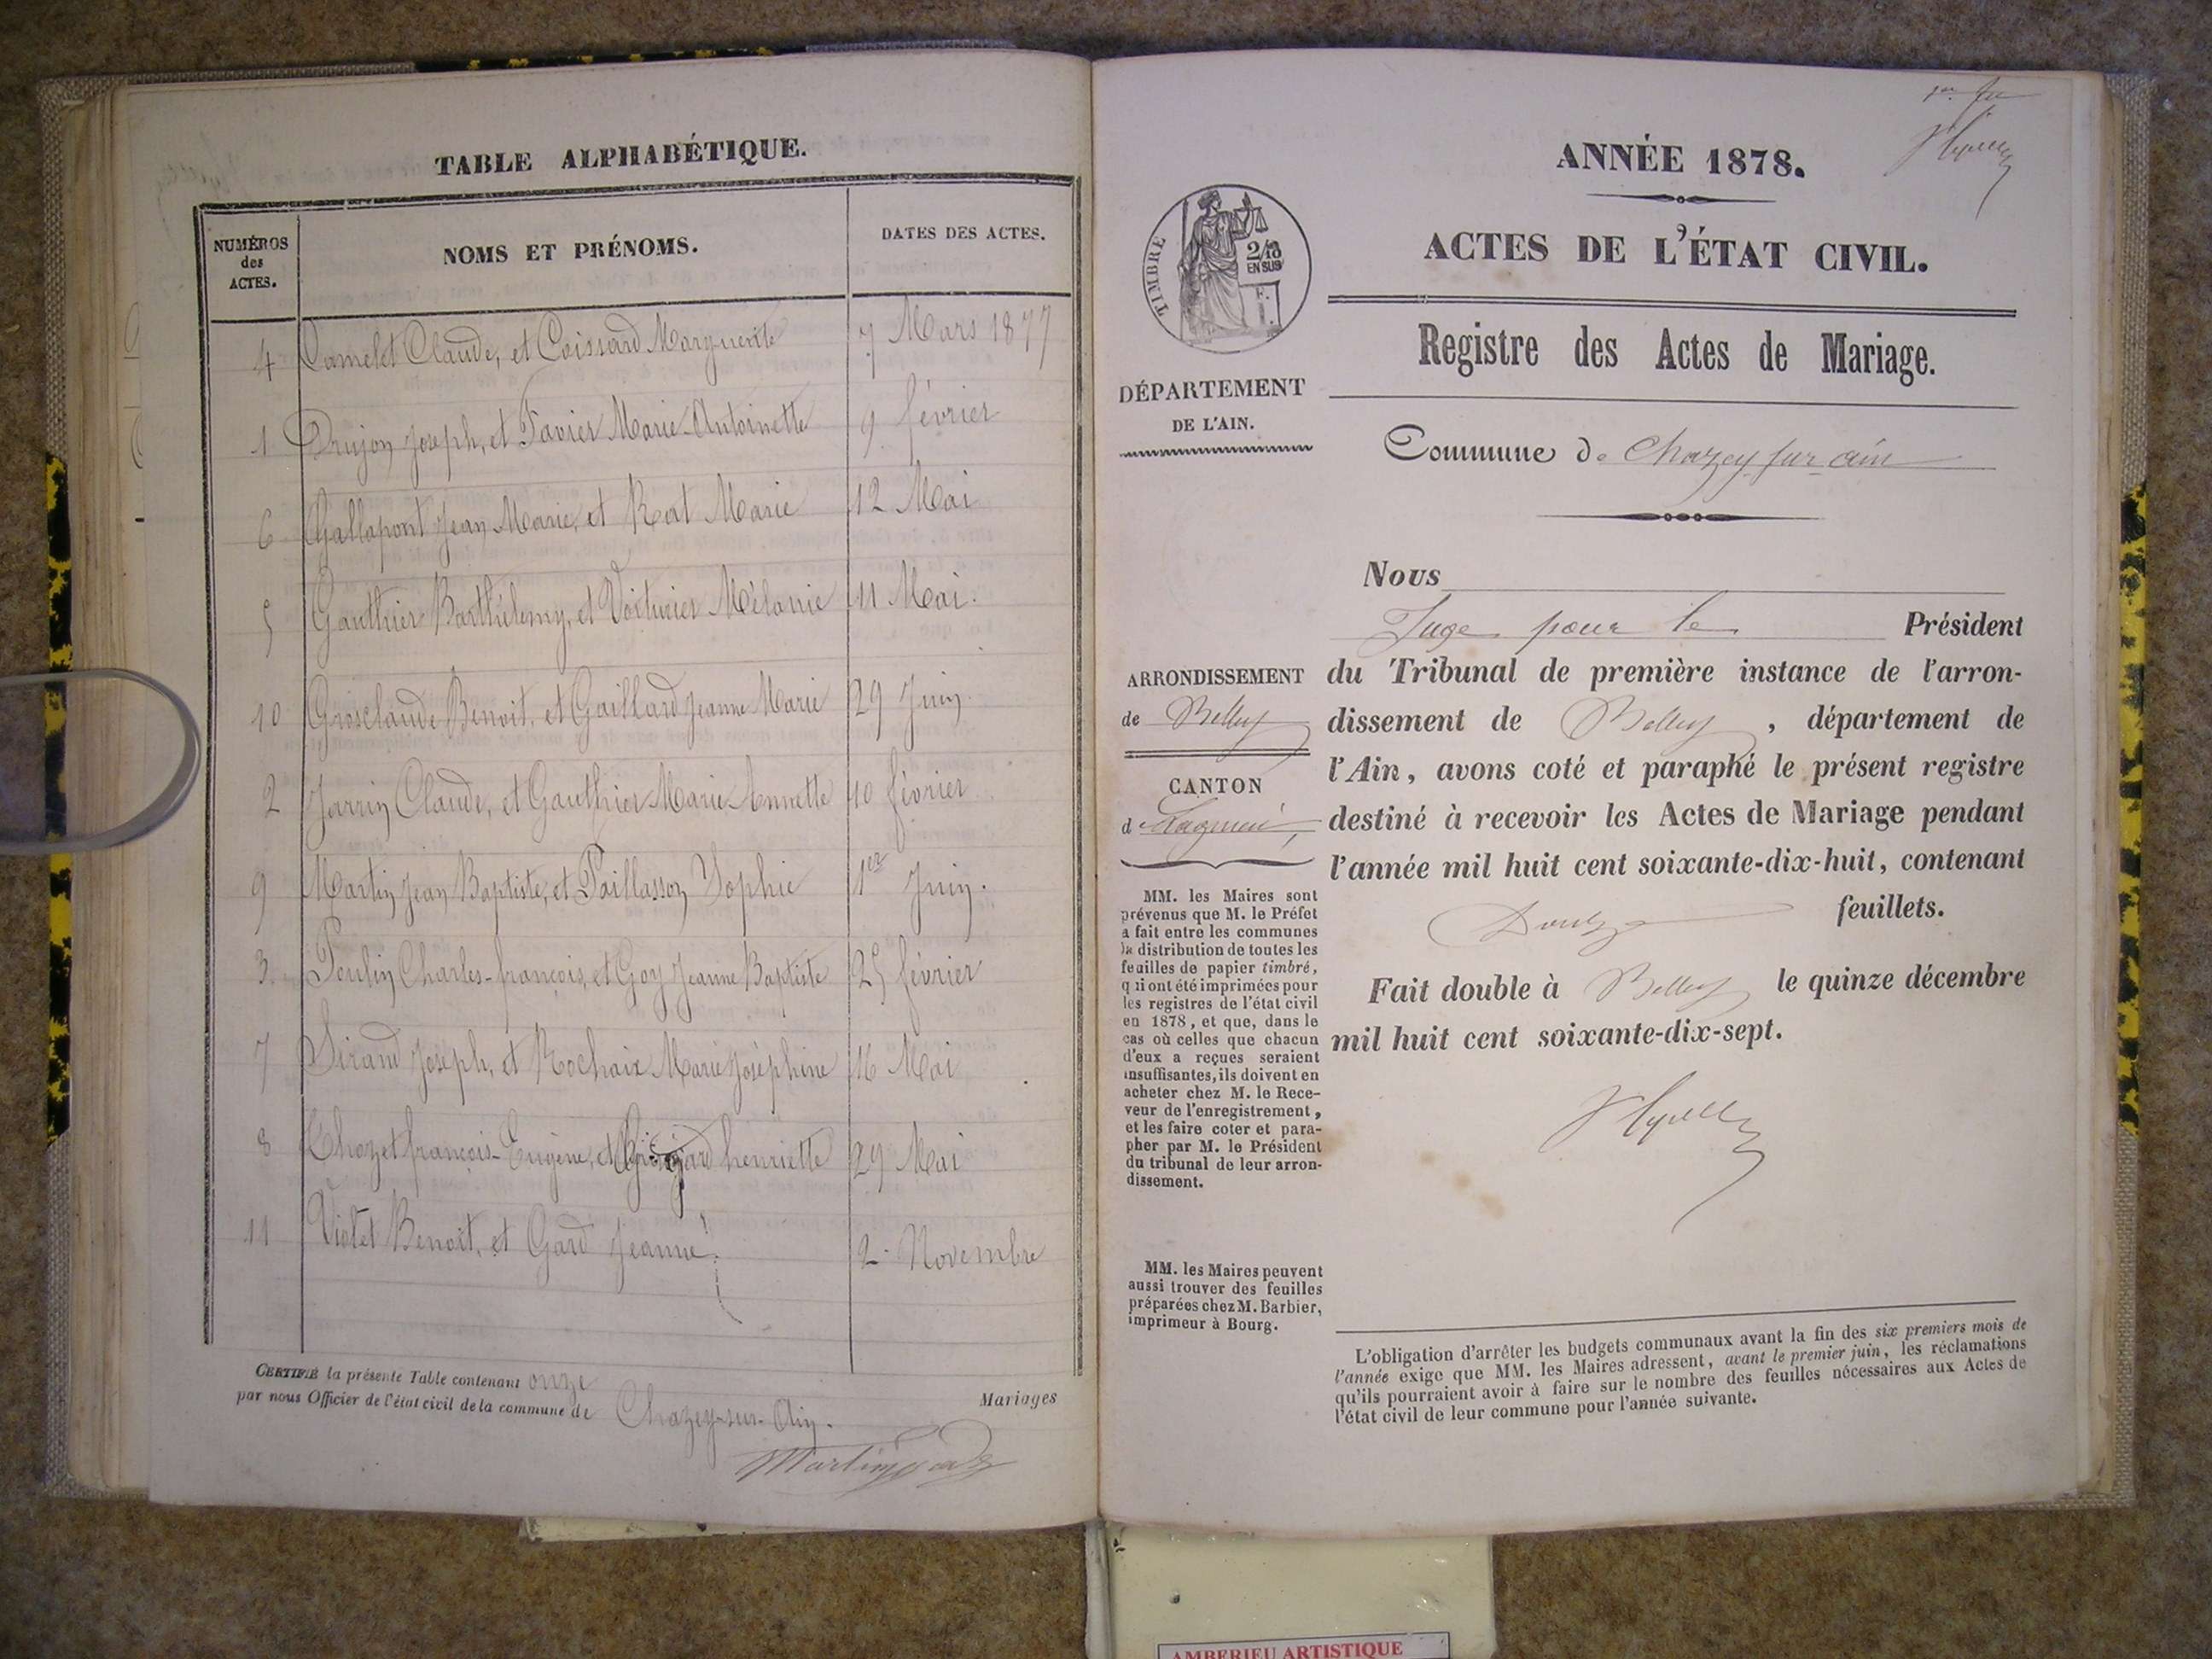 TABLE ALPHABÉTIQUE.
NUMÉROS
des
ACTES.
NOMS ET PRÉNOMS.
DATES DES ACTES.
4 Camelet Claude, et Coissard Marguerite 7 Mars 1877
1 Drujon Joseph, et Tavier Marie-Antoinette 9 février
6 Gallapont Jean Marie, et Rat Marie 12 Mai
5 Gauthier Barthélemy, et Voiturier Mélanie 11 Mai.
10 Grosclaude Benoit, et Gaillard Jeanne Marie 29 Juin
2 Jarrin Claude, et Gauthier Marie Annette 10 février
9 Martin Jean Baptiste, et Paillasson Sophie 1er Juin.
3. Poulin Charles-françois, et Goy Jeanne Baptiste 25 février
7 Sirand Joseph, et Rochaix Marie Joséphine 16 Mai
8 françois-Eugène, et henriette 29 Mai
11 Violet Benoit, et Gard Jeanne. 2 Novembre
CERTIFIÉ la présente Table contenant onze Mariages
par nous Officier de l'état civil de la commune de Chazey-sur-Ain.
ANNÉE 1878.
ACTES DE L'ÉTAT CIVIL.
Registre des Actes de Mariage.
TIMBRE
2/10
EN SUS
DÉPARTEMENT
DE L'AIN.
Commune de Chazey sur ain
Nous
Juge pour le Président
du Tribunal de première instance de l'arron-
dissement de Belley, département de
l'Ain, avons coté et paraphé le présent registre
destiné à recevoir les Actes de Mariage pendant
l'année mil huit cent soixante-dix-huit, contenant
Douze feuillets.
Fait double à Belley le quinze décembre
mil huit cent soixante-dix-sept.
ARRONDISSEMENT
de Belley
CANTON
de Lagnieu
MM. les Maires sont
prévenus que M. le Préfet
a fait entre les communes
la distribution de toutes les
feuilles de papier timbré,
qui ont été imprimées pour
les registres de l'état civil
en 1878, et que, dans le
cas où celles que chacun
d'eux a reçues seraient
insuffisantes, ils doivent en
acheter chez M. le Rece-
veur de l'enregistrement,
et les faire coter et para-
pher par M. le Président
du tribunal de leur arron-
dissement.
MM. les Maires peuvent
aussi trouver des feuilles
préparées chez M. Barbier,
imprimeur à Bourg.
L'obligation d'arrêter les budgets communaux avant la fin des six premiers mois de
l'année exige que MM. les Maires adressent, avant le premier juin, les réclamations
qu'ils pourraient avoir à faire sur le nombre des feuilles nécessaires aux Actes de
l'état civil de leur commune pour l'année suivante.
AMBERIEU ARTISTIQUE